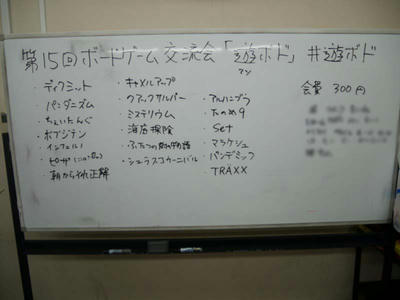 第15回ボードゲーム交流会「遊ボド」 #遊ボド
アソ
ディクミット
パンダズム
ちょいたんぐ
ホブジテン
インフェルノ
朝からそれ正解
キャメルアップ
クアックサルバー
ミステリウム
海底探険
ふたつの街の物語
シュラスコカーニバル
アルハンブラ
たためう
Set
マラケシュ
パンデミック
TRÄXX
会費 300円